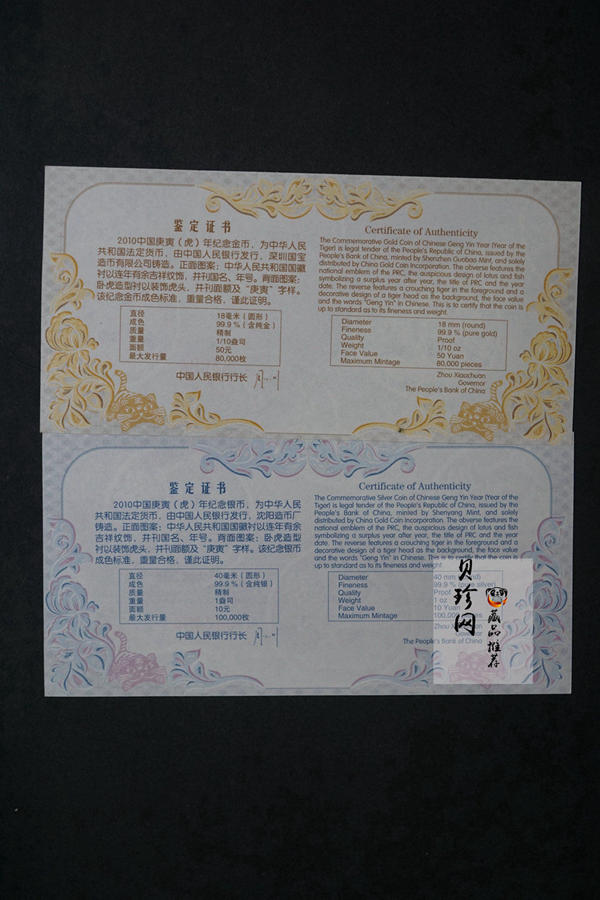 鉴定证书
2010中国庚寅（虎）年纪念金币，为中华人民
共和国法定货币，由中国人民银行发行，深圳国宝
造币有限公司铸造。正面图案：中华人民共和国国徽
衬以连年有余吉祥纹饰，并刊国名、年号。背面图案：
卧虎造型衬以装饰虎头，并刊面额及“庚寅”字样。
该纪念金币成色标准，重量合格，谨此证明。
直径 18毫米（圆形）
成色 99.9％（含纯金）
质量 精制
重量 1/10盎司
面额 50元
最大发行量 80,000枚
中国人民银行行长
Certificate of Authenticity
The Commemorative Gold Coin of Chinese Geng Yin Year (Year of the
Tiger) is legal tender of the People's Republic of China, issued by the
People's Bank of China, minted by Shenzhen Guobao Mint, and solely
distributed by China Gold Coin Incorporation. The obverse features the
national emblem of the PRC, the auspicious design of lotus and fish
symbolizing a surplus year after year, the title of PRC and the year
date. The reverse features a crouching tiger in the foreground and a
decorative design of a tiger head as the background, the face value
and the words "Geng Yin" in Chinese. This is to certify that the coin is
up to standard as to its fineness and weight.
Diameter 18 mm (round)
Fineness 99.9 % (pure gold)
Quality Proof
Weight 1/10 oz
Face Value 50 Yuan
Maximum Mintage 80,000 pieces
Zhou Xiaochuan
Governor
The People's Bank of China
鉴定证书
2010中国庚寅（虎）年纪念银币，为中华人民
共和国法定货币，由中国人民银行发行，沈阳造币厂
铸造。正面图案：中华人民共和国国徽衬以连年有余
吉祥纹饰，并刊国名、年号。背面图案：卧虎造型
衬以装饰虎头，并刊面额及“庚寅”字样。该纪念银币
成色标准，重量合格，谨此证明。
直径 40毫米（圆形）
成色 99.9％（含纯银）
质量 精制
重量 1盎司
面额 10元
最大发行量 100,000枚
中国人民银行行长
Certificate of Authenticity
The Commemorative Silver Coin of Chinese Geng Yin Year (Year of the
Tiger) is legal tender of the People's Republic of China, issued by the
People's Bank of China, minted by Shenyang Mint, and solely
distributed by China Gold Coin Incorporation. The obverse features the
national emblem of the PRC, the auspicious design of lotus and fish
symbolizing a surplus year after year, the title of PRC and the year
date. The reverse features a crouching tiger in the foreground and a
decorative design of a tiger head as the background, the face value
and the words "Geng Yin" in Chinese. This is to certify that the coin is
up to standard as to its fineness and weight
Diameter 40 mm (round)
Fineness 99.9 % (pure silver)
Quality Proof
Weight 1 oz
Face Value 10 Yuan
Maximum Mintage 100,000 pieces
Zhou Xiaochuan
Governor
The People's Bank of China
贝珍网
藏品推荐